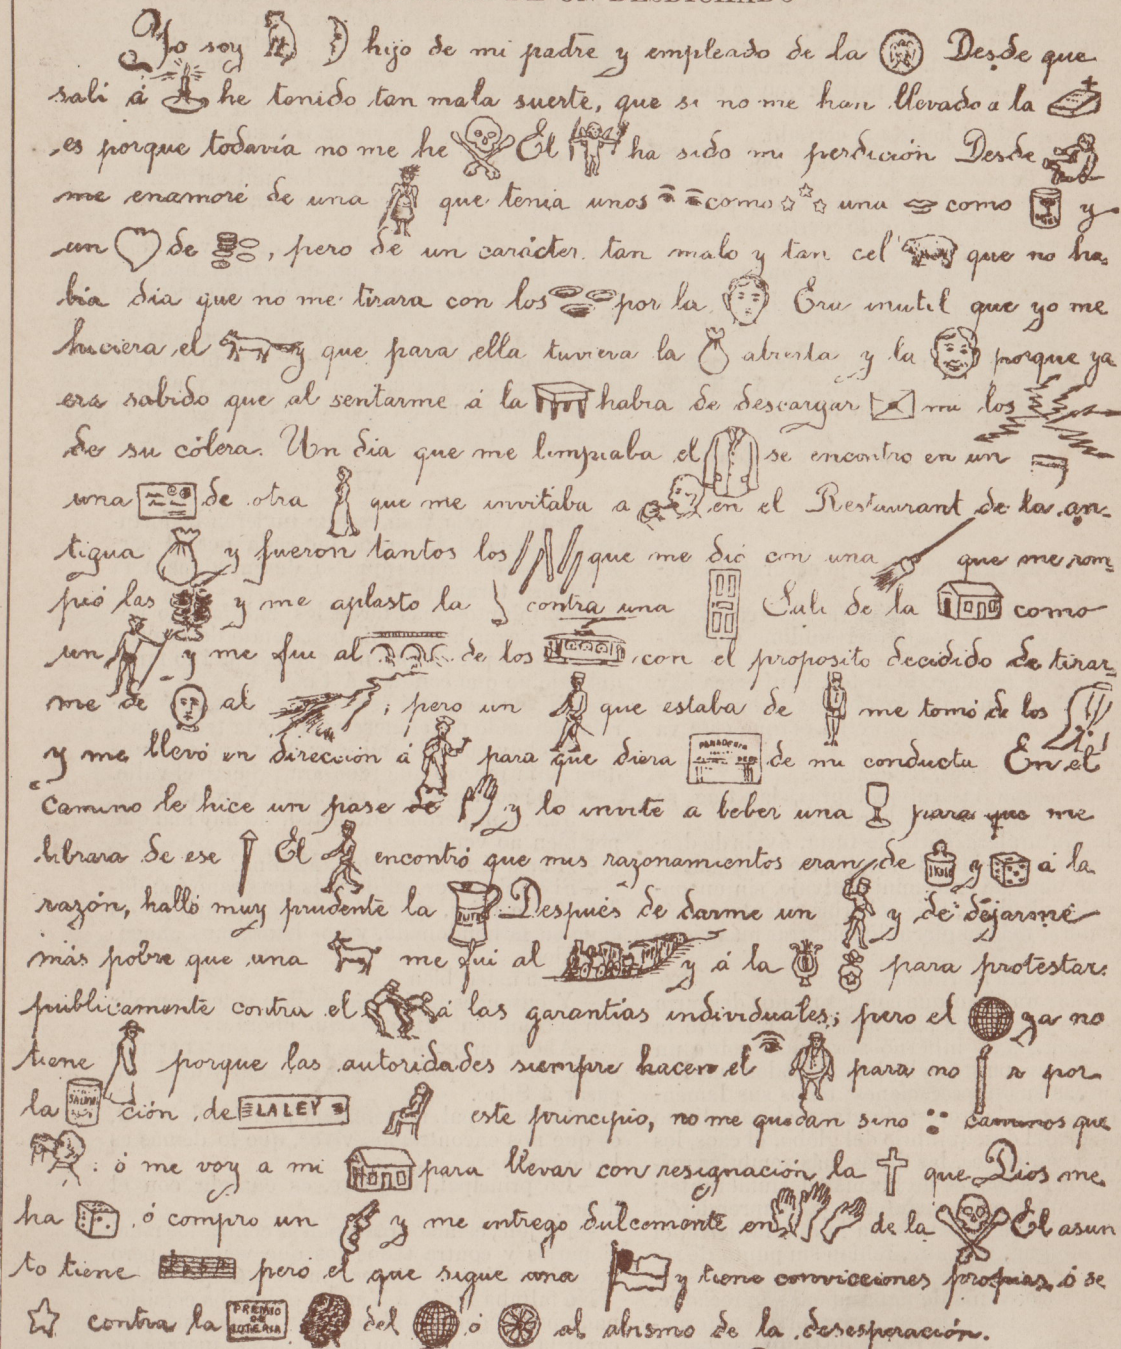 Yo soy hijo de mi padre y empleado de la Desde que
sali á he tenido tan mala suerte, que si no me han llevado a la
es porque todavía no me he El ha sido mi perdición Desde
me enamoré de una que tenia unos como una como y
un de , pero de un carácter tan malo y tan cel que no ha-
bia dia que no me tirara con los por la Era inutil que yo me
hiciera el y que para ella tuviera la abierta y la porque ya
era sabido que al sentarme á la habia de descargar mi los
de su cólera. Un dia que me limpiaba el se encontro en un
una de otra que me invitaba a en el Restaurant de la an-
tigua y fueron tantos los que me dió con una que me rom-
pió las y me aplasto la contra una Sali de la como
un y me fui al de los con el proposito decidido de tirar-
me de al ; pero un que estaba de me tomó de los
y me llevó en dirección á para que diera PANADERIA de mi conducta En el
camino le hice un pase de y lo invite a beber una para que me
librara de ese El encontró que mis razonamientos eran de 1 KILO y á la
razón, halló muy prudente la Después de darme un y de dejarme
más pobre que una me fui al y á la para protestar
publicamente contra el á las garantías individuales; pero el ya no
tiene porque las autoridades siempre hacen el para no r por
la ción de LA LEY este principio, no me quedan sino caminos que
: ó me voy a mi para llevar con resignación la que Dios me
ha , ó compro un y me entrego dulcemente en de la El asun
to tiene pero el que sigue una y tiene convicciones propias ó se
contra la PREMIO DE LOTERIA del ó al abismo de la desesperación.